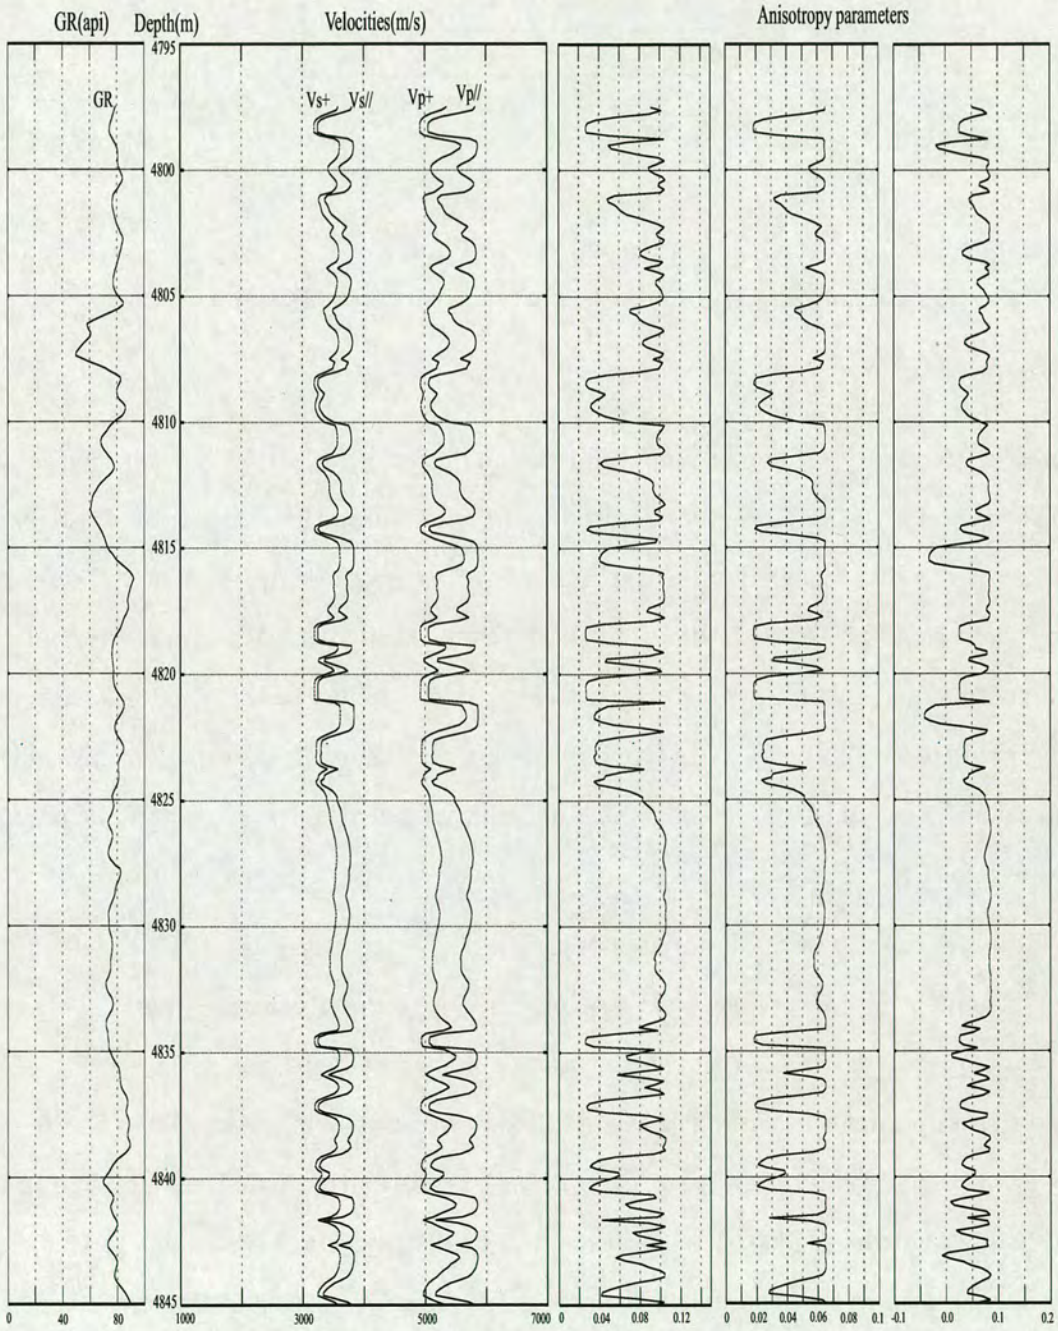 GR(api) Depth(m) Velocities(m/s) Anisotropy parameters
4795
GR Vs+ Vs// Vp+ Vp//
4800
4805
4810
4815
4820
4825
4830
4835
4840
4845
0 40 80 1000 3000 5000 7000 0 0.04 0.08 0.12 0 0.02 0.04 0.06 0.08 0.1 -0.1 0.0 0.1 0.2